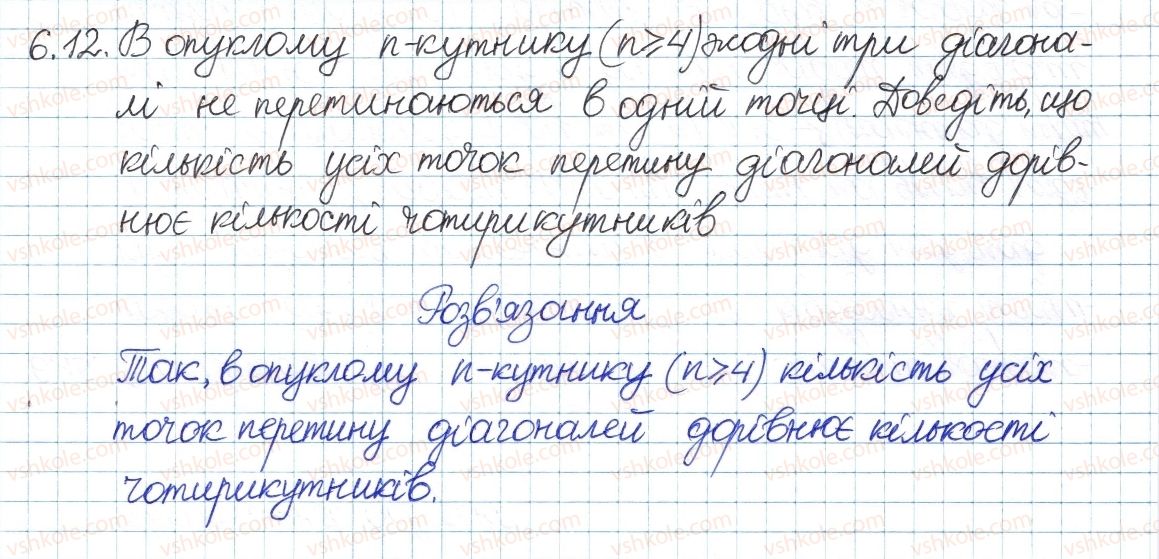 6.12. В опуклому n-кутнику (n⩾4) жодні три діагона-
лі не перетинаються в одній точці. Доведіть, що
кількість усіх точок перетину діагоналей дорів-
нює кількості чотирикутників
Розв'язання
Так, в опуклому n-кутнику (n⩾4) кількість усіх
точок перетину діагоналей дорівнює кількості
чотирикутників.